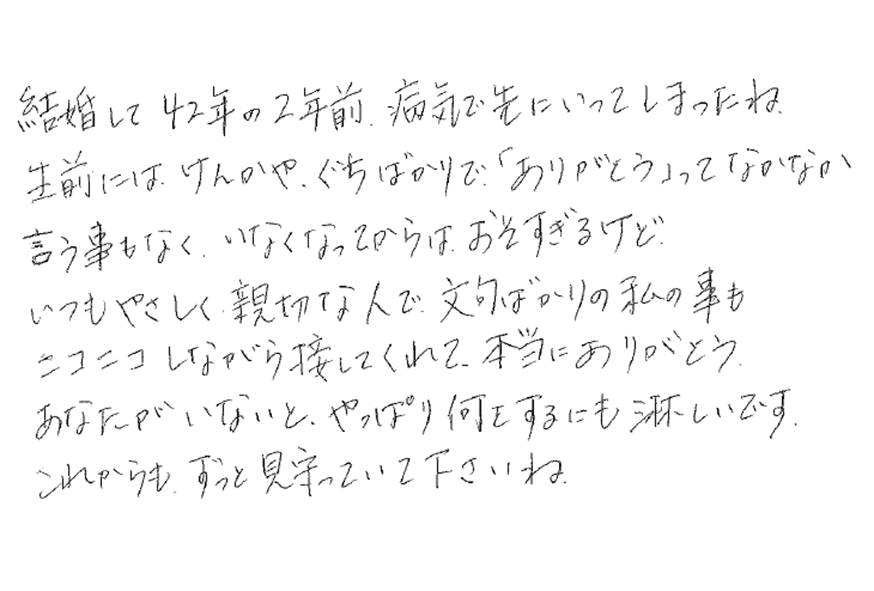 結婚して42年の2年前、病気で先にいってしまったね。
生前には、けんかや、ぐちばかりで、「ありがとう」ってなかなか
言う事もなく、いなくなってからは、おそすぎるけど、
いつもやさしく、親切な人で、文句ばかりの私の事も
ニコニコしながら接してくれて、本当にありがとう。
あなたがいないと、やっぱり何をするにも淋しいです。
これからも、ずっと見守っていて下さいね。